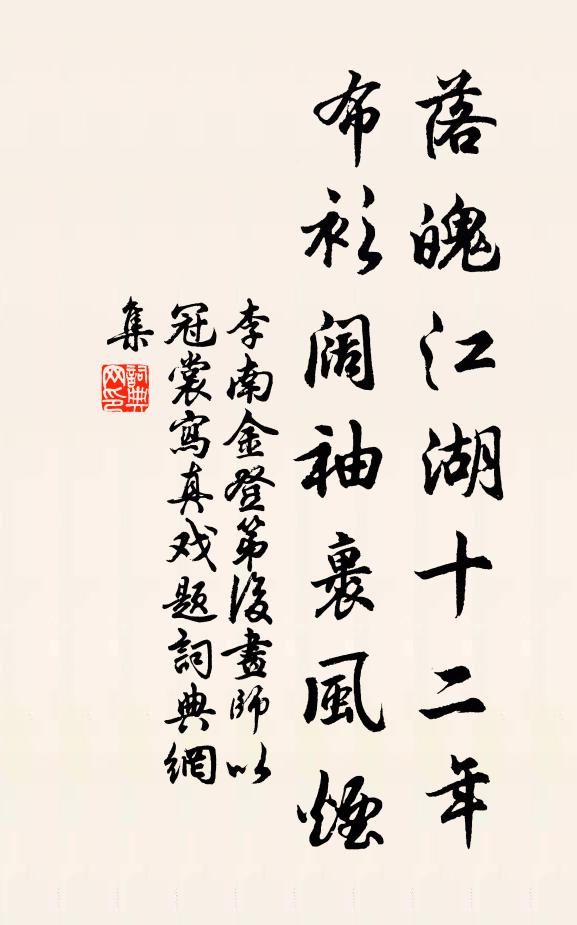 落魄江湖十二年
布衫阔袖裹風煙
李南金登第後畫師以
冠裳寫真戏題詞典網
集
詞典网印